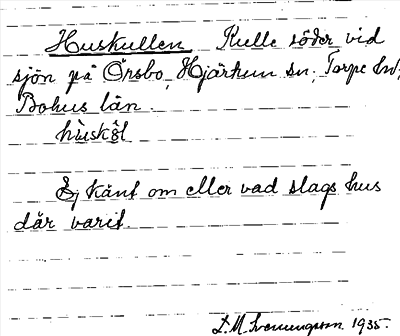 Huskullen Kulle söder vid
sjön på Örsbo, Hjärtum sn; Torpe hd;
Bohus län.
hùskŏl
Ej känt om eller vad slags hus
där varit.
L. M. Svenungsson 1935.